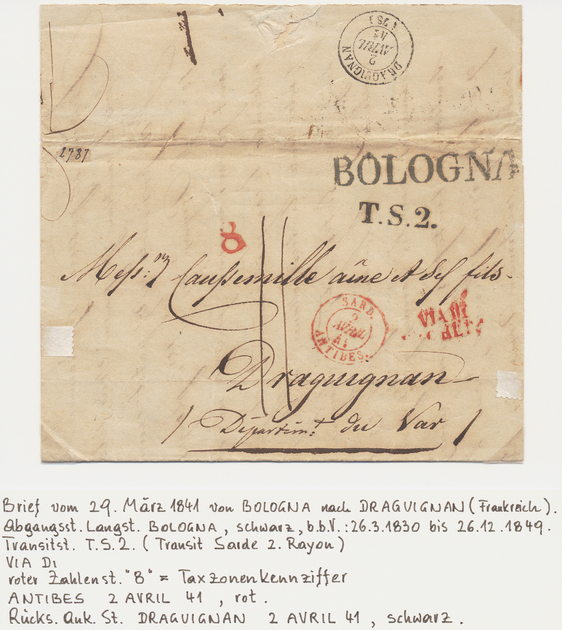 DRAGUIGNAN
2
AVRIL
41
(78)
1787
BOLOGNA
T.S.2.
8
Mess:rs Caussemille aîné & des fils
SARD.
2
AVRIL
41
ANTIBES.
VIA DI
Draguignan
Départim.t du Var
Brief vom 29. März 1841 von BOLOGNA nach DRAGUIGNAN (Frankreich).
Abgangsst. Langst. BOLOGNA, schwarz, b.b.V.: 26.3.1830 bis 26.12.1849.
Transitst. T.S.2. (Transit Sarde 2. Rayon)
VIA DI
roter Zahlenst. "8" = Taxzonenkennziffer
ANTIBES 2 AVRIL 41, rot.
Rücks. Ank. St. DRAGUIGNAN 2 AVRIL 41, schwarz.